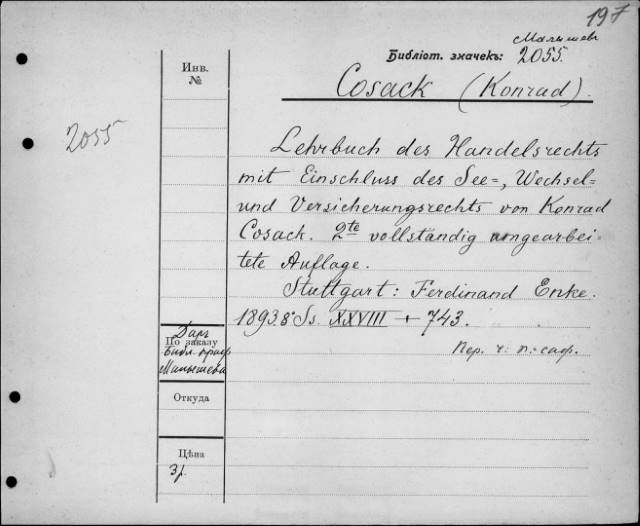 197
Малышев
Библіот. значекъ: 2055.
Инв.
№
Cosack (Konrad).
2055
Lehrbuch des Handelsrechts
mit Einschluss des See=, Wechsel=
und Versicherungsrechts von Konrad
Cosack. 2te vollständig umgearbei-
tete Auflage.
Stuttgart: Ferdinand Enke.
1893. 8° Ss. XXVIII + 743.
Пер. ч: п: саф.
Даръ
По заказу
Библ. проф
Малышева
Откуда
Цѣна
3р.